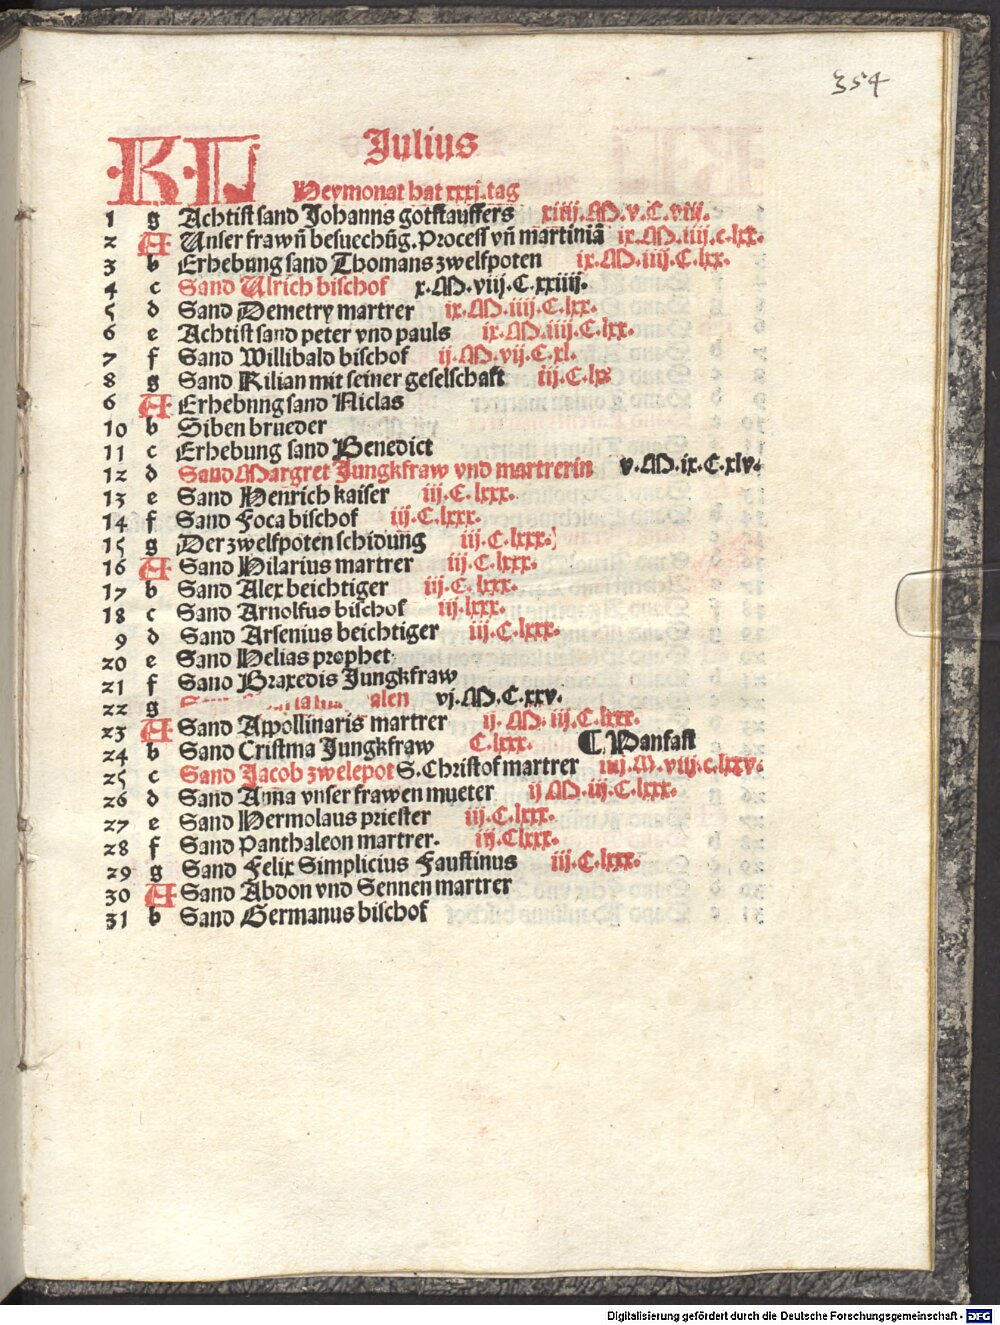 354
·K·L· Julius
Heymonat hat xxxj.tag
1 g Achtist sand Johanns gotstauffers xiiij.M.v.C.viij.
2 A Unser frawñ besuechũg. Process vñ martiniã ix.M.iiij.c.lxx.
3 b Erhebung sand Thomans zwelfpoten ix.M.iiij.C.lxx.
4 c Sand Ulrich bischof x.M.viij.C.xxiiij.
5 d Sand Demetry martrer ix.M.iiij.C.lxx.
6 e Achtist sand peter vnd pauls ix.M.iiij.C.lxx.
7 f Sand Willibald bischof ij.M.vij.C.xl.
8 g Sand Kilian mit seiner geselschaft iij.C.lx
6 A Erhebnng sand Niclas
10 b Siben brueder
11 c Erhebung sand Benedict
12 d Sand Margret Jungkfraw vnd martrerin v.M.ix.C.xlv.
13 e Sand Henrich kaiser iij.C.lxxx.
14 f Sand Foca bischof iij.C.lxxx.
15 g Der zwelfpoten schidung iij.C.lxxx.
16 A Sand Hilarius martrer iij.C.lxxx.
17 b Sand Alex beichtiger iij.C.lxxx.
18 c Sand Arnolfus bischof iij.lxxx.
9 d Sand Arsenius beichtiger iij.C.lxxx.
20 e Sand Helias prophet
21 f Sand Braxedis Jungkfraw
22 g alen vj.M.C.xxv.
23 A Sand Appollinaris martrer ij.M.iij.C.lxxx.
24 b Sand Cristina Jungkfraw C.lxxx. ¶ Panfast
25 c Sand Jacob zwelepot S. Christof martrer iiij.M.viij.c.lxxv.
26 d Sand Anna vnser frawen mueter ij M.iij.C.lxxx.
27 e Sand Hermolaus priester iij.C.lxxx.
28 f Sand Panthaleon martrer. iij Clxxx.
29 g Sand Felix Simplicius Faustinus iij.C.lxxx.
30 A Sand Abdon vnd Sennen martrer
31 b Sand Germanus bischof
Digitalisierung gefördert durch die Deutsche Forschungsgemeinschaft - DFG